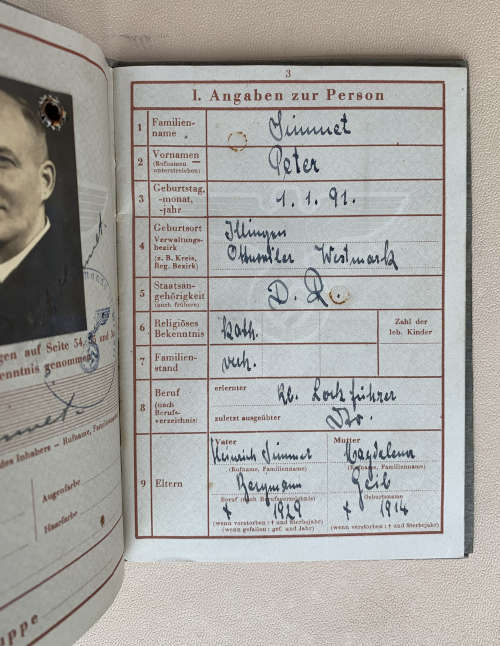 gen auf Seite 54,
enntnis genommen
und
des Inhabers — Rufname, Familienname
Augenfarbe
Haarfarbe
uppe
3
I. Angaben zur Person
1 Familien-
name
Simmet
2 Vornamen
(Rufnamen
unterstreichen)
Peter
3 Geburtstag,
-monat,
-jahr
1. 1. 91.
4 Geburtsort
Verwaltungs-
bezirk
(z. B. Kreis,
Reg. Bezirk)
Illingen
Ottweiler Westmark
5 Staatsan-
gehörigkeit
(auch frühere)
D. R.
6 Religiöses
Bekenntnis
kath.
Zahl der
leb. Kinder
7 Familien-
stand
verh.
8 Beruf
(nach
Berufs-
verzeichnis)
erlernter
Lockführer
zuletzt ausgeübter
9 Eltern
Vater
Heinrich Simmet
(Rufname, Familienname)
Bergmann
Beruf (nach Berufsverzeichnis)
† 1929
(wenn verstorben: † und Sterbejahr)
(wenn gefallen: gef. und Jahr)
Mutter
Magdalena
(Rufname, Familienname)
Geib
Geburtsname
† 1914
(wenn verstorben: † und Sterbejahr)